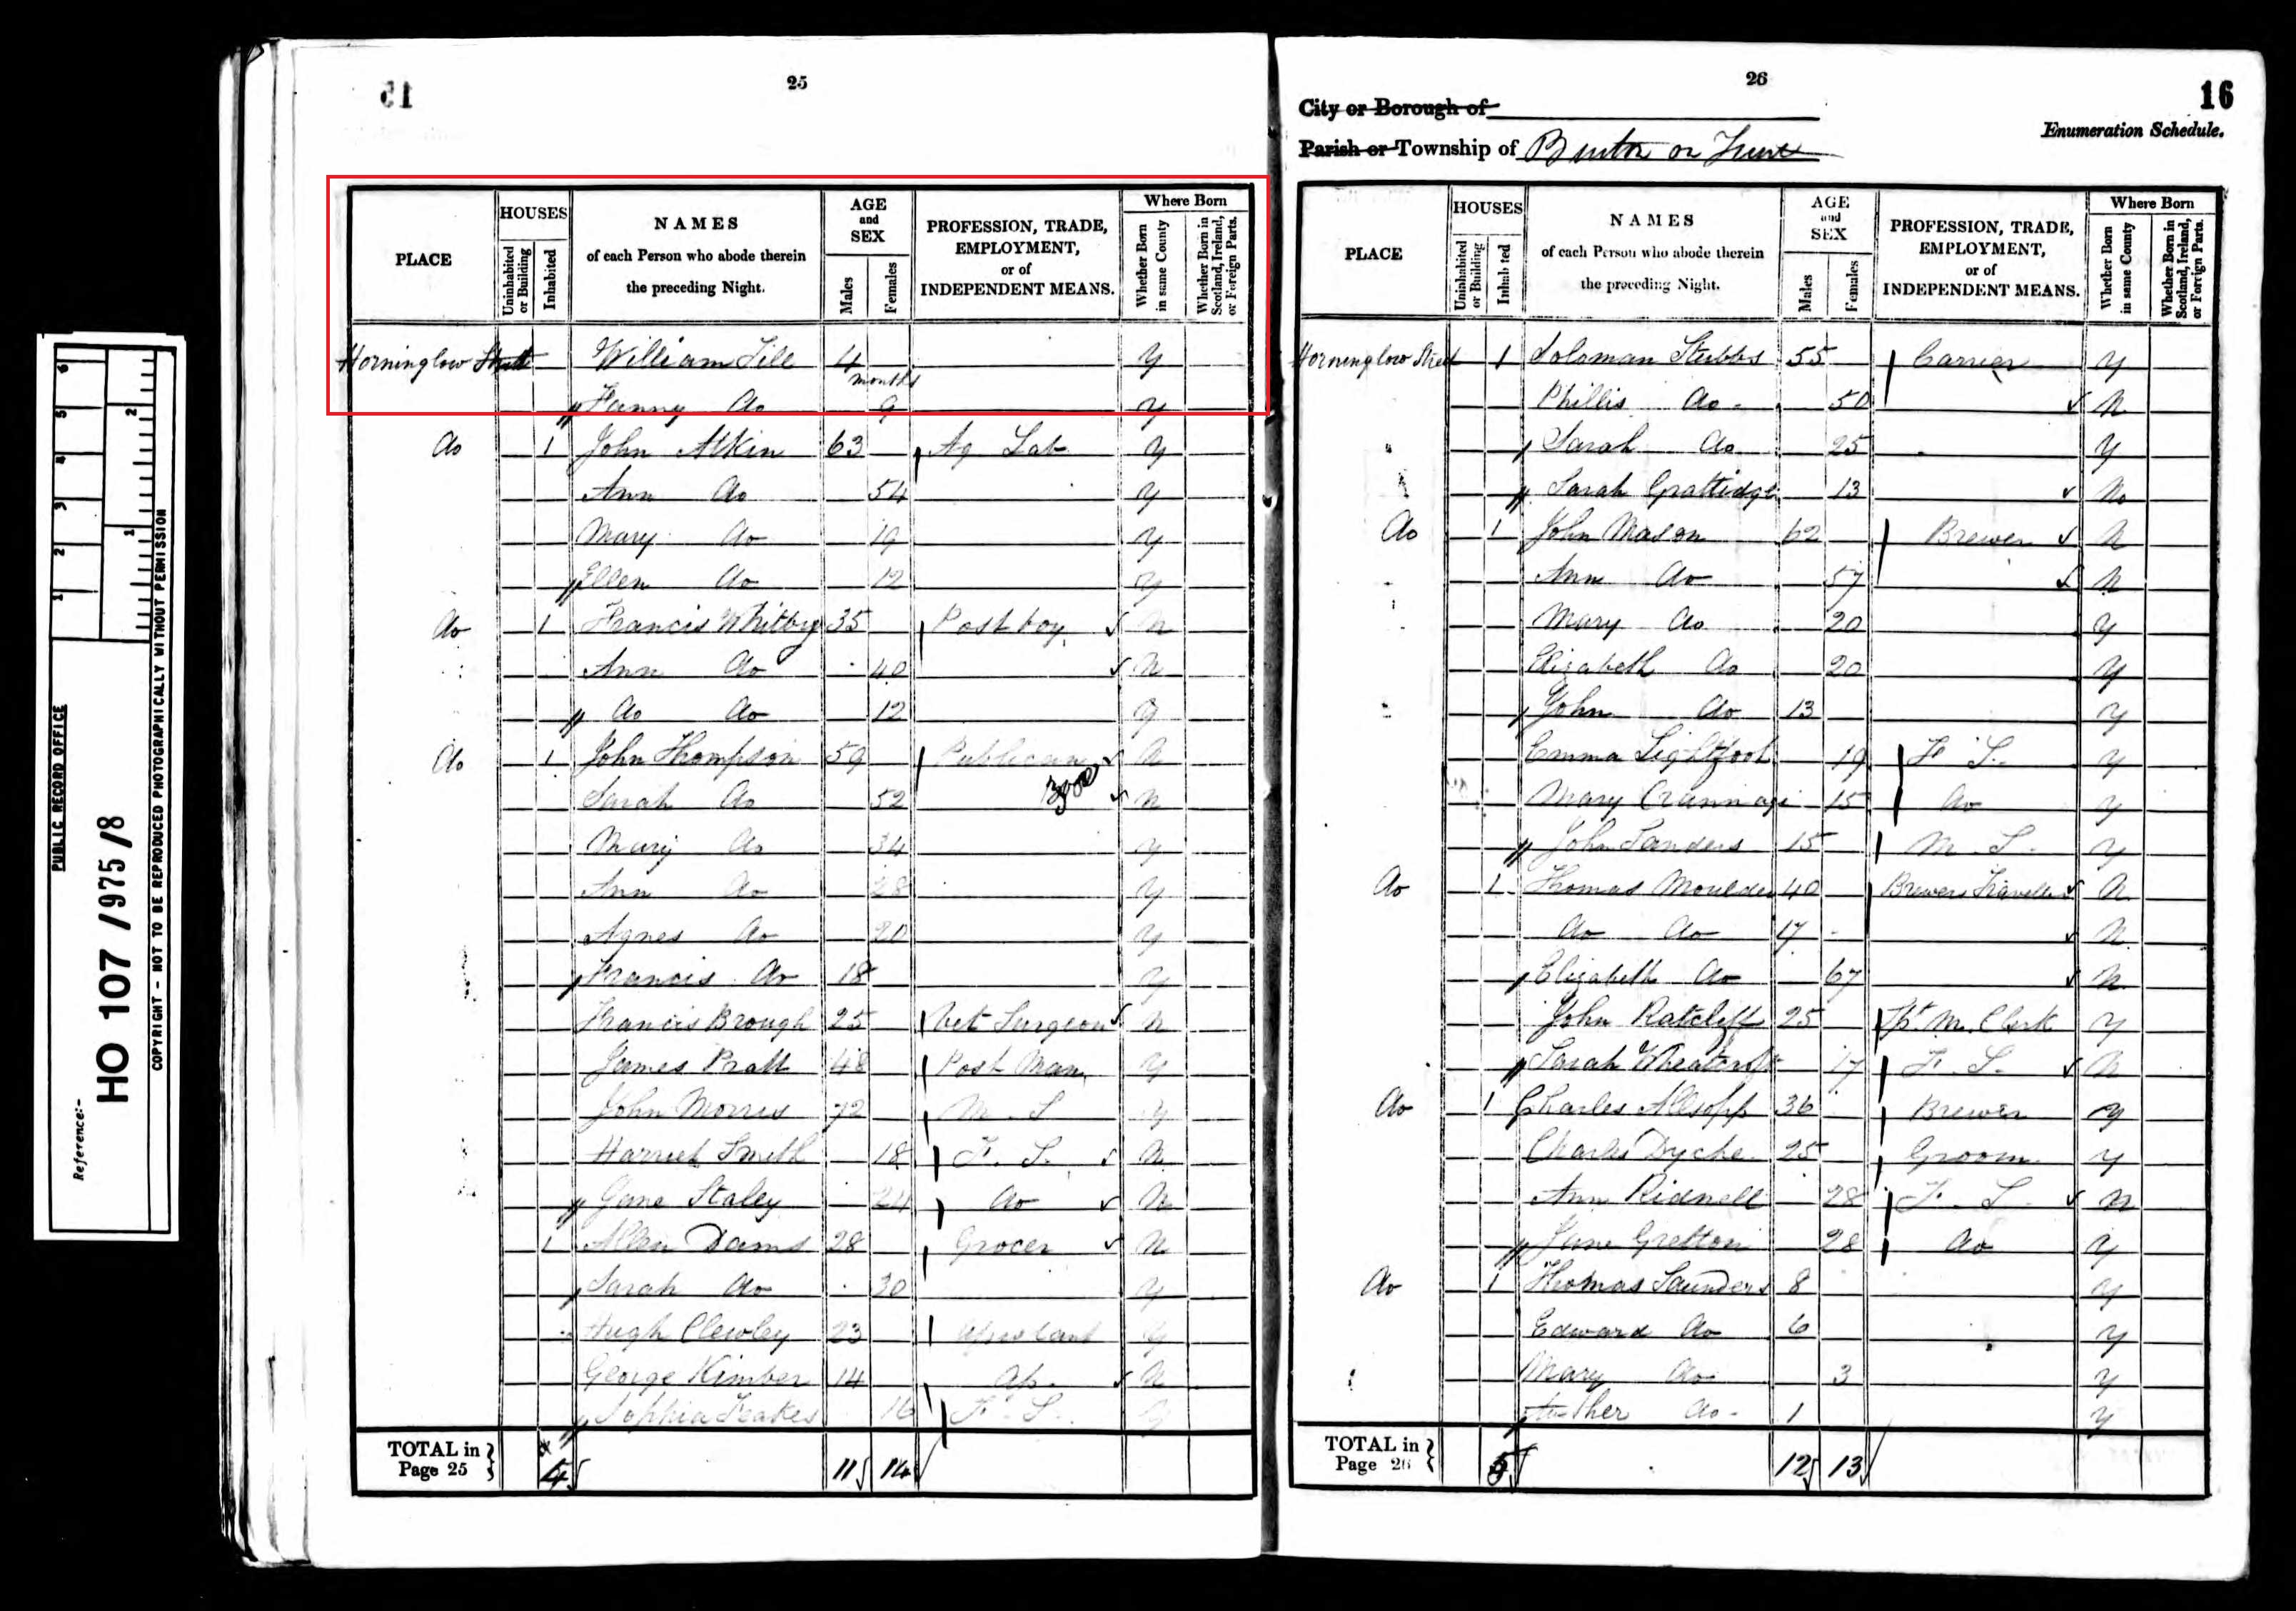 25
15
PLACE
HOUSES
Uninhabited or Building
Inhabited
NAMES
of each Person who abode therein
the preceding Night.
AGE
and
SEX
Males
Females
PROFESSION, TRADE,
EMPLOYMENT,
or of
INDEPENDENT MEANS.
Where Born
Whether Born in same County
Whether Born in Scotland, Ireland, or Foreign Parts.
Horninglow Street William Till 4 Y
Fanny do months 9 Y
do 1 John Atkin 63 Ag Lab Y
Ann do 54 Y
Mary do 19 Y
Ellen do 12 Y
do 1 Francis Whitby 35 Post boy N
Ann do 40 N
do do 12 Y
do 1 John Thompson 59 Publican N
Sarah do 52 N
Mary do 34 Y
Ann do 28 Y
Agnes do 20 Y
Francis do 18 Y
Francis Brough 25 Vet Surgeon N
James Pratt 48 Post Man Y
John Morris 72 M S Y
Harriet Smith 18 F. S. N
Jane Staley 24 do N
1 Allen Dams 28 Grocer N
Sarah do 30 Y
Hugh Clewley 23 Y
George Kimber 14 Ap. N
Sophia 16 F. S. Y
TOTAL in
Page 25
4 11 14
26
16
City or Borough of
Enumeration Schedule.
Parish or Township of Burton on Trent
PLACE
HOUSES
Uninhabited or Building
Inhabited
NAMES
of each Person who abode therein
the preceding Night.
AGE
and
SEX
Males
Females
PROFESSION, TRADE,
EMPLOYMENT,
or of
INDEPENDENT MEANS.
Where Born
Whether Born in same County
Whether Born in Scotland, Ireland, or Foreign Parts.
Horninglow Street 1 Soloman Stubbs 55 Carrier Y
Phillis do 50 N
Sarah do 25 Y
Sarah Grattidge 13 No
do 1 John Mason 62 Brewer N
Ann do 57 N
Mary do 20 Y
Elizabeth do 20 Y
John do 13 Y
Emma Lightfoot 19 F. S. Y
Mary 15 do Y
John Sanders 15 M. S. Y
do 1 Thomas Moulder 40 Brewers Traveller N
do do 17 N
Elizabeth do 67 N
John Ratcliff 25 Clerk Y
Sarah Wheatcroft 17 F. S. N
do 1 Charles Allsopp 36 Brewer Y
Charles Dyche 25 Groom Y
Ann Ridnell 28 F. S. N
Jane Gretton 28 do Y
do 1 Thomas Saunders 8 Y
Edward do 6 Y
Mary do 3 Y
do 1 Y
TOTAL in
Page 26
5 12 13
PUBLIC RECORD OFFICE
Reference:-
HO 107 /975 /8
COPYRIGHT - NOT TO BE REPRODUCED PHOTOGRAPHICALLY WITHOUT PERMISSION
1 2 3 4 5 6
1 2